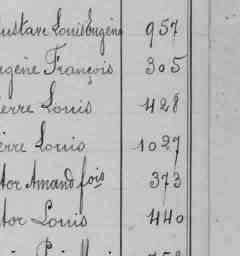 ustave Louis Eugène 957
ugène François 305
erre Louis 428
erre Louis 1027
tor Amand fois 373
tor Louis 440